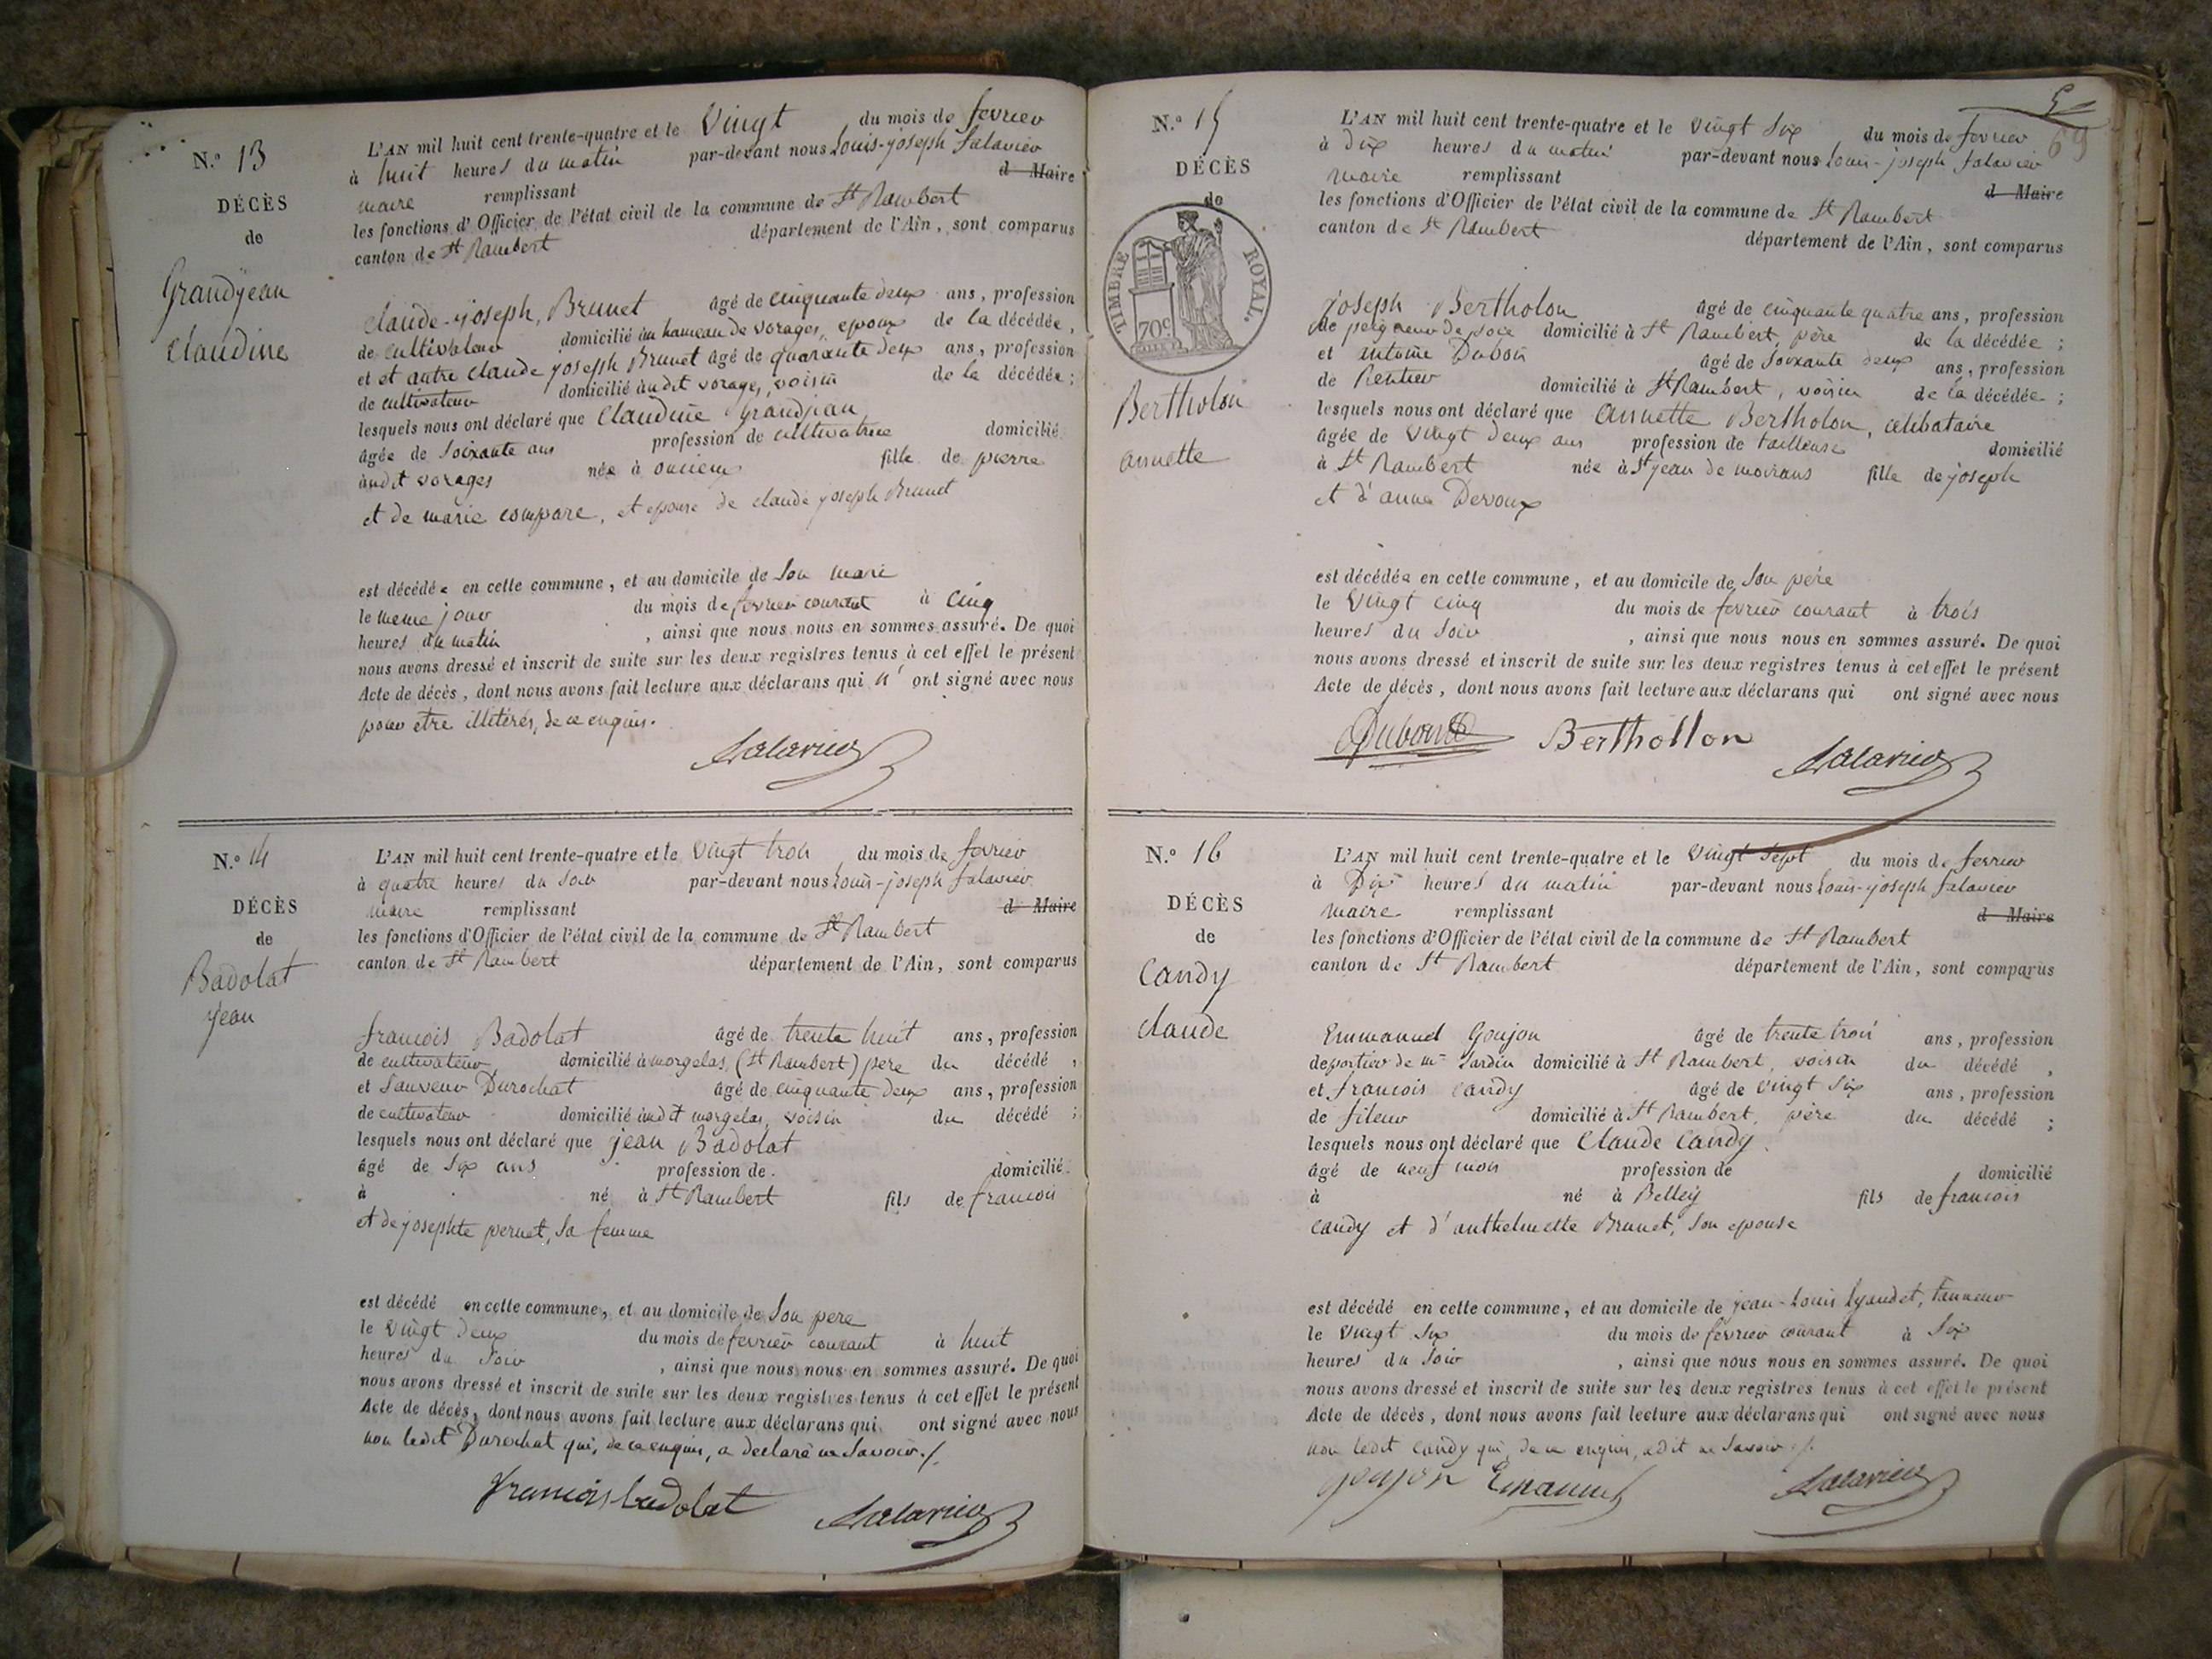 N.° 13
DÉCÈS
de
Grandjean
Claudine
L'AN mil huit cent trente-quatre et le Vingt du mois de fevrier
à huit heures du matin par-devant nous Louis-joseph Salavier
d Maire
maire remplissant
les fonctions d'Officier de l'état civil de la commune de St Rambert
canton de St Rambert département de l'Ain, sont comparus
Claude-joseph, Brunet âgé de cinquante deux ans, profession
de cultivateur domicilié au hameau de vorages, epoux de la décédée,
et et autre claude joseph Brunet âgé de quarante deux ans, profession
de cultivateur domicilié audit vorages, voisin de la décédée;
lesquels nous ont déclaré que Claudine grandjean
âgée de Soixante ans profession de cultivatrice domicilié
audit vorages née à oncieux fille de pierre
et de marie compare, et epouse de claude joseph Brunet
est décédée en cette commune, et au domicile de Son mari
le meme jour du mois de fevrier courant à cinq
heures du matin , ainsi que nous nous en sommes assuré. De quoi
nous avons dressé et inscrit de suite sur les deux registres tenus à cet effet le présent
Acte de décès, dont nous avons fait lecture aux déclarans qui n' ont signé avec nous
pour etre illitérés, de ce enquis.
Salavier
N.° 14
DÉCÈS
de
Badolat
jean
L'AN mil huit cent trente-quatre et le vingt trois du mois de fevrier
à quatre heures du soir par-devant nous Louis-joseph Salavier
maire remplissant d Maire
les fonctions d'Officier de l'état civil de la commune de St Rambert
canton de St Rambert département de l'Ain, sont comparus
francois Badolat âgé de trente huit ans, profession
de cultivateur domicilié à morgelas, (St Rambert) pere du décédé ,
et Sauveur Durochat âgé de cinquante deux ans, profession
de cultivateur domicilié audit morgelas, voisin du décédé ;
lesquels nous ont déclaré que jean Badolat
âgé de Six ans profession de domicilié
à né à St Rambert fils de francois
et de josephte pernet, Sa femme
est décédé en cette commune, et au domicile de Son pere
le vingt deux du mois de fevrier courant à huit
heures du Soir , ainsi que nous nous en sommes assuré. De quoi
nous avons dressé et inscrit de suite sur les deux registres tenus à cet effet le présent
Acte de décès, dont nous avons fait lecture aux déclarans qui ont signé avec nous
non ledit Durochat qui, de ce enquis, a declaré ne Savoir./.
francois badolat Salavier
5
69
N.° 15
DÉCÈS
de
TIMBRE ROYAL.
70c
Bertholon
annette
L'AN mil huit cent trente-quatre et le vingt Six du mois de fevrier
à dix heures du matin par-devant nous Louis-joseph Salavier
maire remplissant d Maire
les fonctions d'Officier de l'état civil de la commune de St Rambert
canton de St Rambert département de l'Ain, sont comparus
joseph Bertholon âgé de cinquante quatre ans, profession
de peigneur de soie domicilié à St Rambert, père de la décédée ;
et antoine Dubois âgé de Soixante deux ans, profession
de Rentier domicilié à St Rambert, voisin de la décédée ;
lesquels nous ont déclaré que annette Bertholon, celibataire
âgée de vingt deux ans profession de tailleuse domicilié
à St Rambert née à St jean de moirans fille de joseph
et d'anne Devoux
est décédée en cette commune, et au domicile de Son père
le Vingt cinq du mois de fevrier courant à trois
heures du Soir , ainsi que nous nous en sommes assuré. De quoi
nous avons dressé et inscrit de suite sur les deux registres tenus à cet effet le présent
Acte de décès, dont nous avons fait lecture aux déclarans qui ont signé avec nous
Dubois Berthollon Salavier
N.° 16
DÉCÈS
de
Candy
claude
L'AN mil huit cent trente-quatre et le vingt Sept du mois de fevrier
à Dix heures du matin par-devant nous Louis-joseph Salavier
maire remplissant d Maire
les fonctions d'Officier de l'état civil de la commune de St Rambert
canton de St Rambert département de l'Ain, sont comparus
Emmanuel Goujon âgé de trente trois ans, profession
de portier de mr Sardin domicilié à St Rambert, voisin du décédé ,
et francois Candy âgé de vingt Six ans, profession
de fileur domicilié à St Rambert, père du décédé ;
lesquels nous ont déclaré que Claude Candy.
âgé de neuf mois profession de domicilié
à né à Belley fils de francois
candy et d'anthelmette Brunet, Son epouse
est décédé en cette commune, et au domicile de jean-Louis Lyaudet, tanneur
le vingt Six du mois de fevrier courant à Six
heures du Soir , ainsi que nous nous en sommes assuré. De quoi
nous avons dressé et inscrit de suite sur les deux registres tenus à cet effet le présent
Acte de décès, dont nous avons fait lecture aux déclarans qui ont signé avec nous
non ledit Candy qui, de ce enquis, a dit ne Savoir./.
goujon Emanuel Salavier